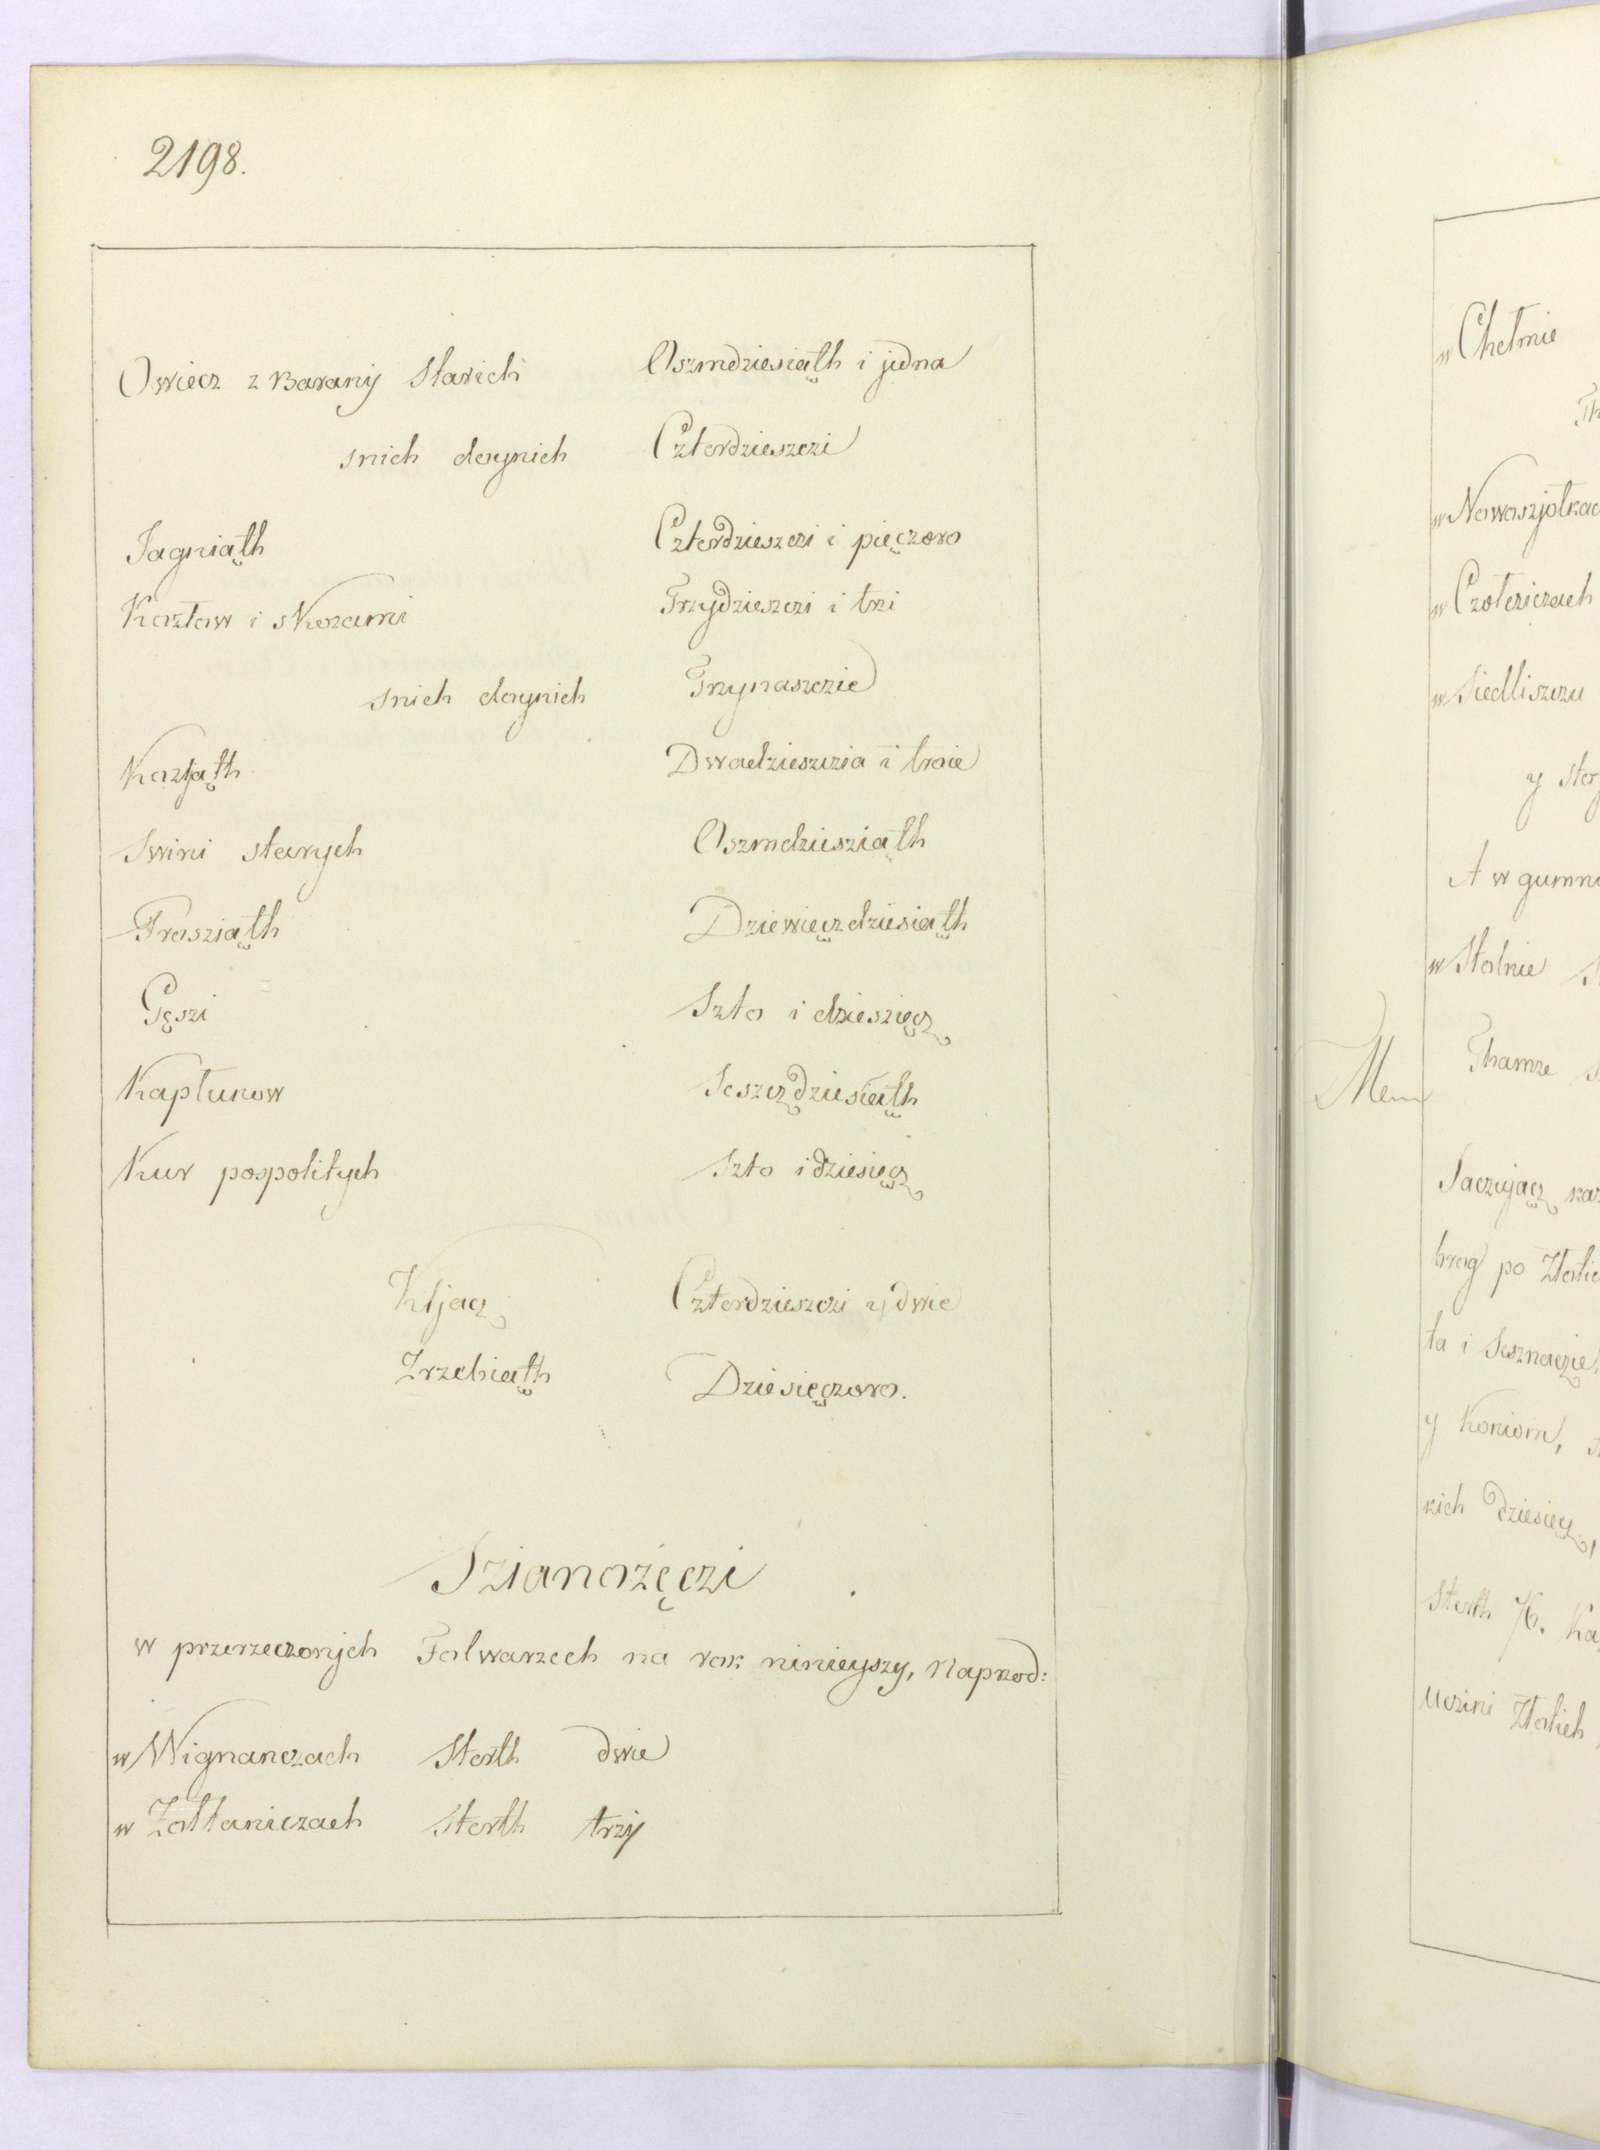 2198.
Owiecz z Barany Starich Oszmdziesiąth i jedna
snich doynich Czterdzieszczi
Jagniąth Czterdzieszczi i pięczoro
Kozłow i sKozami Trzydzieszczi i trzi
snich doynich Trzynaszczie
Kozląth Dwadzieszczia i troie
Swini starych Oszmdziesziąth
Prosziąth Dziewięczdziesiąth
Gęszi Szto i dzieszięcz
Kapłunow Seszczdziesiąth
Kur pospolitych Szto i dziesięcz
Kljacz Czterdzieszczi y dwie
Zrzebiąth Dziesięczoro.
Szianożęczi
w przerzeczonych Folwarzech na rok ninieyszy, Naprzod:
w Wignanczach Sterth dwie
w Zołtaniczach Sterth trzy
w Chełmie
w Nowoszjołkach
w Czołcziczach
w Siedliszczu
y ster
A w gumn
w Stolnie
Thamze
Mem
Saczującz
brog po Złotic
ta i Sesznaczie,
y Koniom,
kich dziesięcz,
Sterth
Uczini Złotich